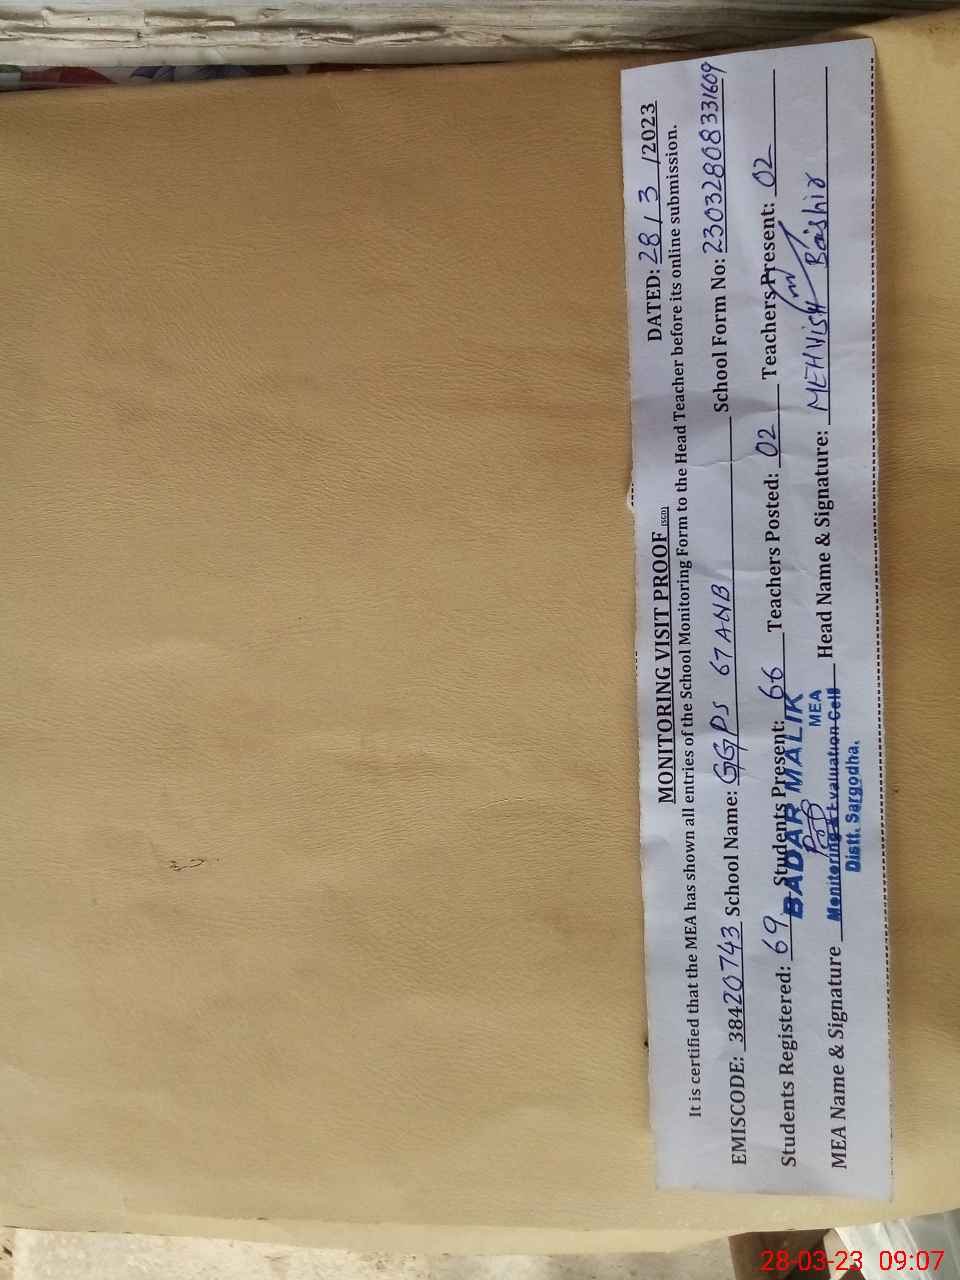 MONITORING VISIT PROOF (SGD)
DATED: 28 / 3 /2023
It is certified that the MEA has shown all entries of the School Monitoring Form to the Head Teacher before its online submission.
EMISCODE: 38420743 School Name: GGPS 67 ANB School Form No: 23032808331609
Students Registered: 69 Students Present: 66 Teachers Posted: 02 Teachers Present: 02
BADAR MALIK
MEA
MEA Name & Signature Head Name & Signature: MEHVISH Bashir
Monitoring & Evaluation Cell
Distt. Sargodha.
28-03-23 09:07